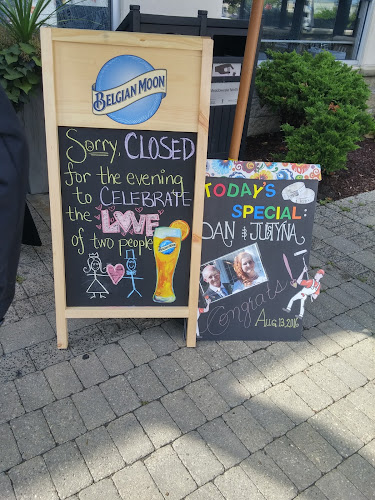 BELGIAN MOON
Sorry, CLOSED
for the evening
to CELEBRATE
the LOVE
of two people
BELGIAN MOON
TODAY'S
SPECIAL:
DAN & JUSTYNA
Congrats
AUG.13.2016